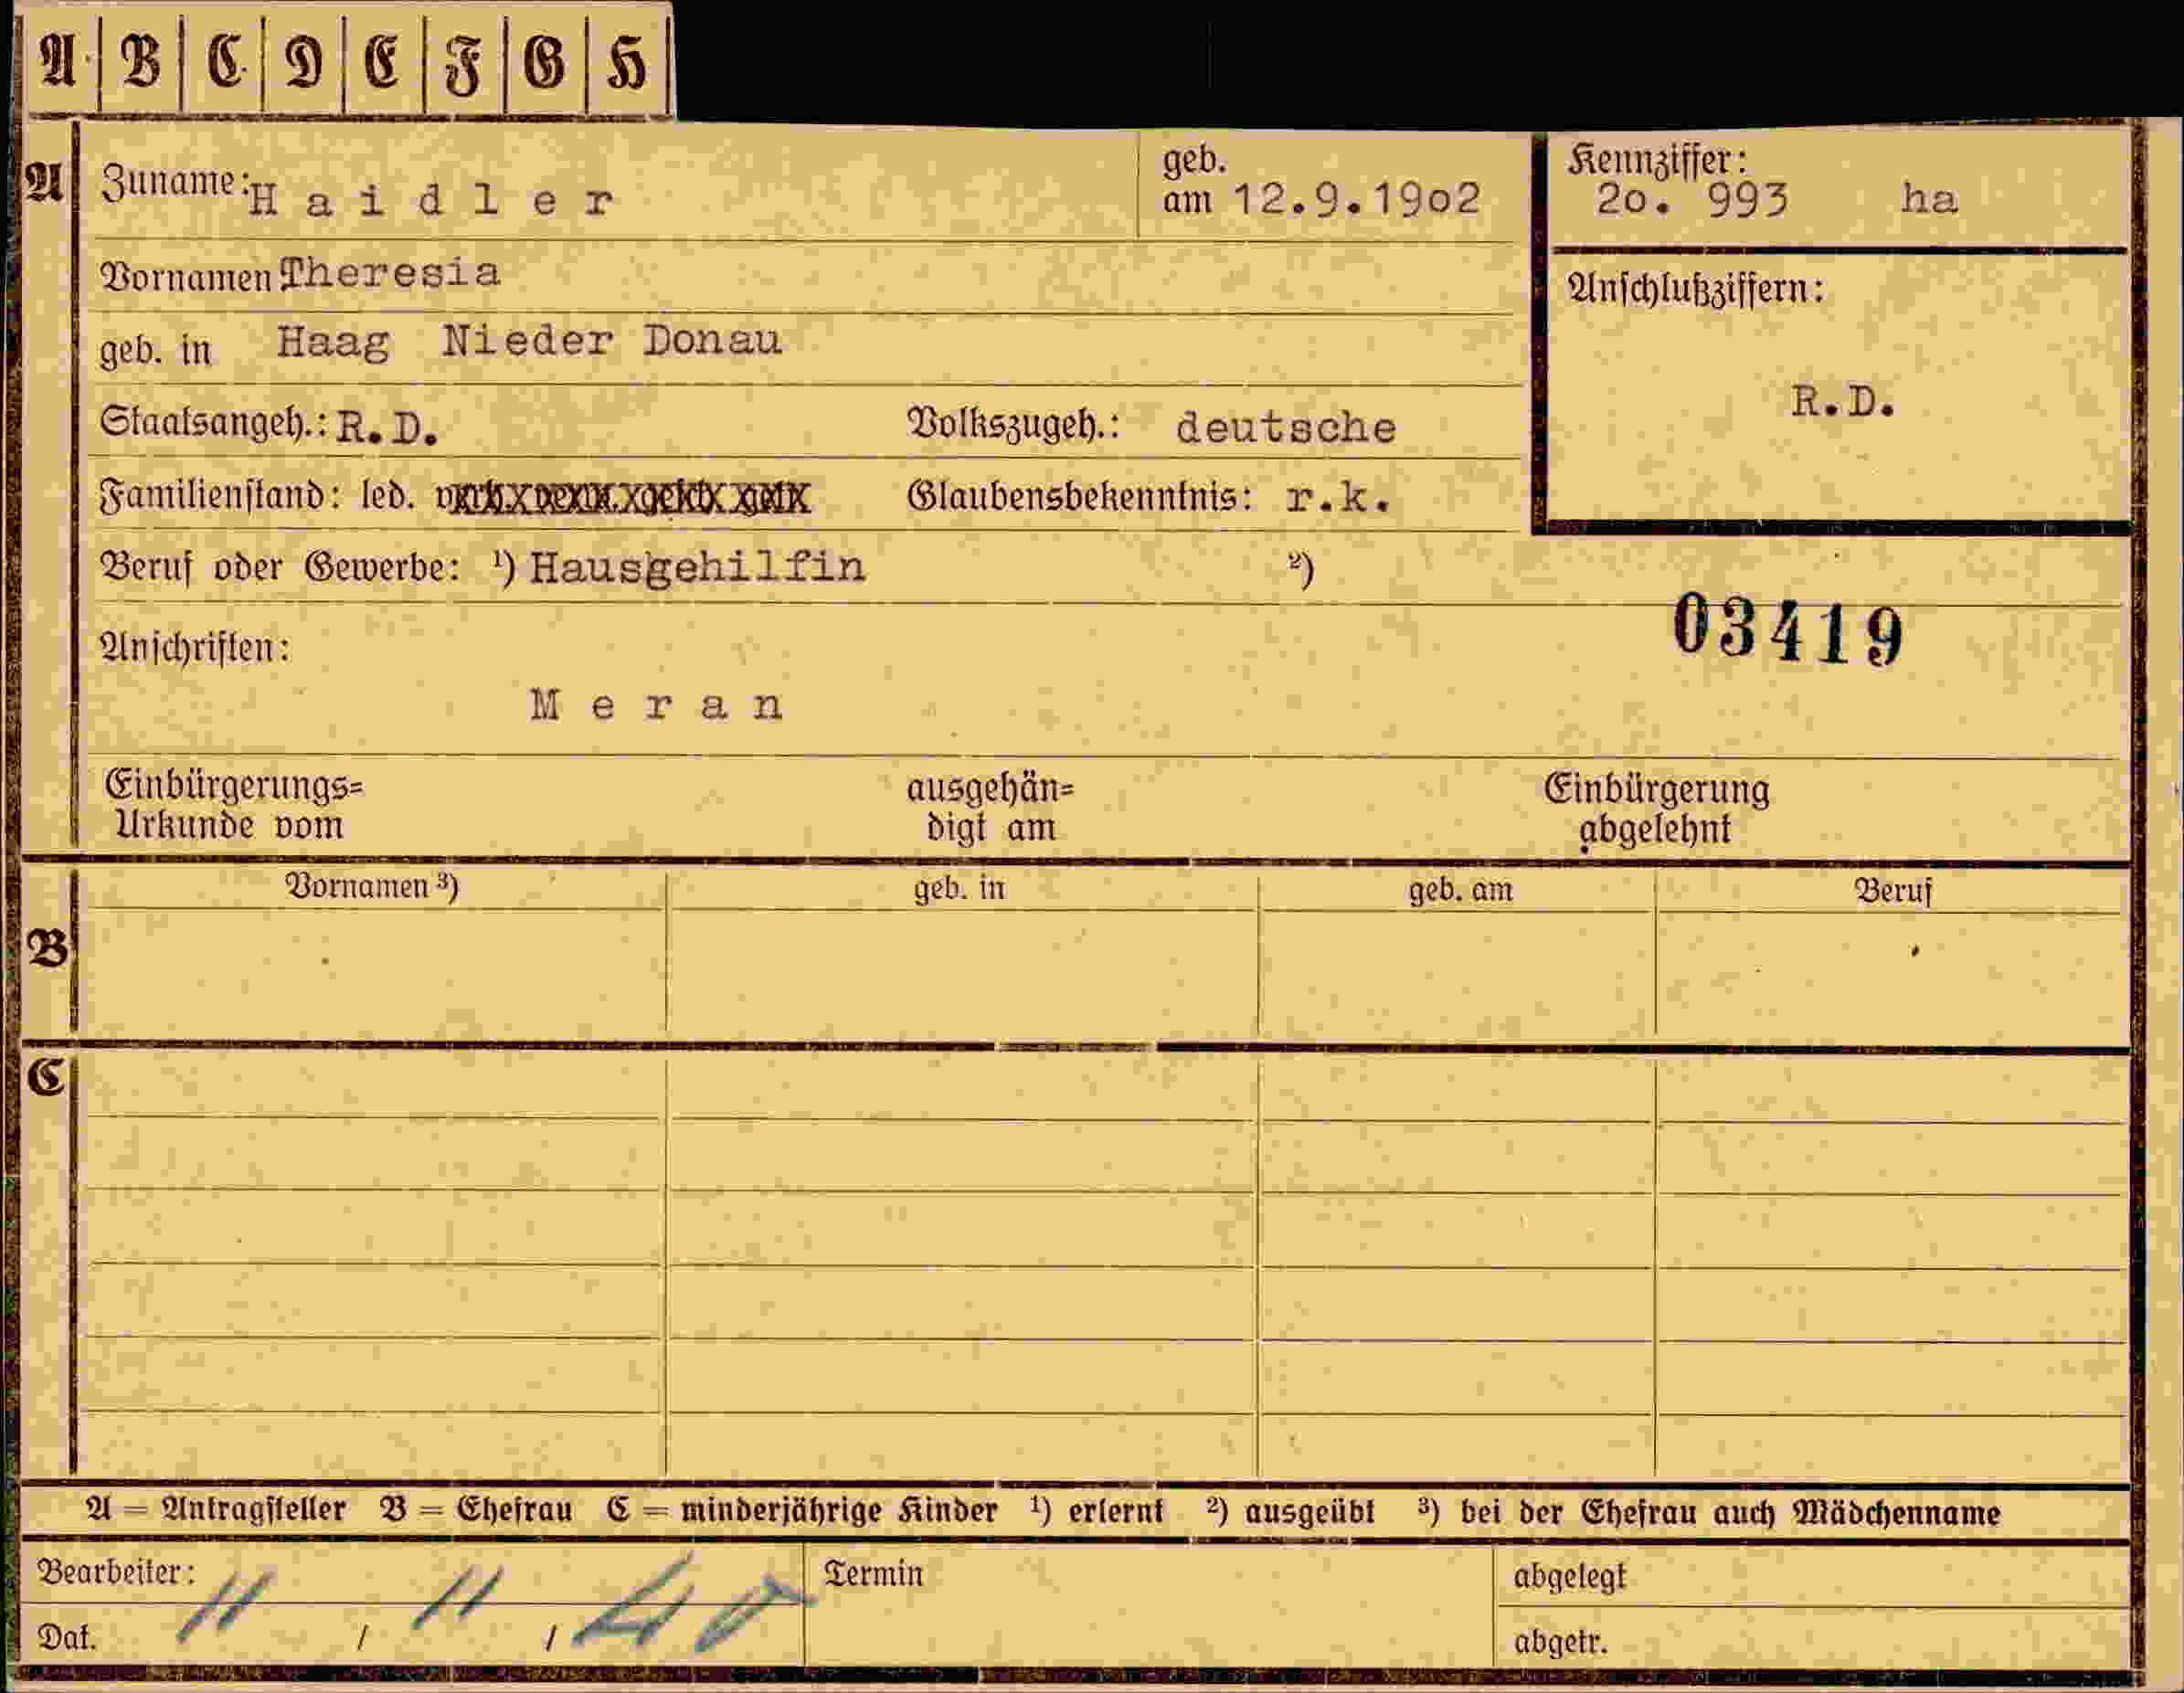 A B C D E F G H
A Zuname: Haidler geb. am 12.9.1902 Kennziffer: 20. 993 ha
Vornamen Theresia
Anschlußziffern:
geb. in Haag Nieder Donau
R.D.
Staatsangeh.: R.D. Volkszugeh.: deutsche
Familienstand: led. Glaubensbekenntnis: r.k.
Beruf oder Gewerbe: ¹) Hausgehilfin ²)
03419
Anschriften:
Meran
Einbürgerungs= ausgehän= Einbürgerung
Urkunde vom digt am abgelehnt
Vornamen ³) geb. in geb. am Beruf
B
C
A = Antragsteller B = Ehefrau C = minderjährige Kinder ¹) erlernt ²) ausgeübt ³) bei der Ehefrau auch Mädchenname
Bearbeiter: Termin abgelegt
Dat. 11 / 11 / 40 abgetr.